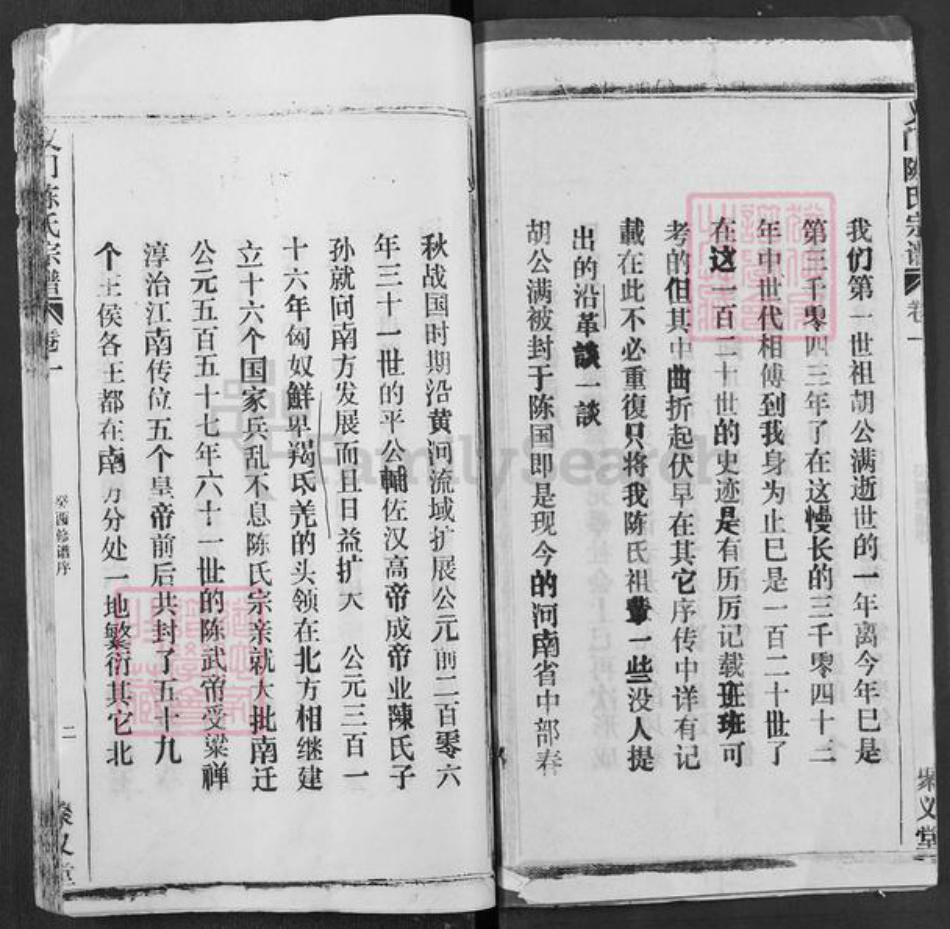 义门陈氏宗谱
卷一
聚义堂
我们第一世祖胡公满逝世的一年离今年巳是
第三千零四三年了在这慢长的三千零四十二
年中世代相傅到我身为止巳是一百二十世了
在这一百二十世的史迹是有历历记载班班可
考的但其中曲折起伏早在其它序传中详有记
載在此不必重復只将我陈氏祖輩一些没人提
出的沿革談一談
胡公满被封于陈国即是现今的河南省中部春
秋战国时期沿黄河流域扩展公元前二百零六
年三十一世的平公輔佐汉高帝成帝业陳氏子
孙就问南方发展而且日益扩大 公元三百一
十六年匈奴鮮卑羯氏羌的头领在北方相继建
立十六个国家兵乱不息陈氏宗亲就大批南迁
公元五百五十七年六十一世的陈武帝受梁禅
淳治江南传位五个皇帝前后共封了五十九
个王侯各王都在南方分处一地繁衍其它北
义门陈氏宗谱
卷一
癸酉修谱序
二
聚义堂
FamilySearch